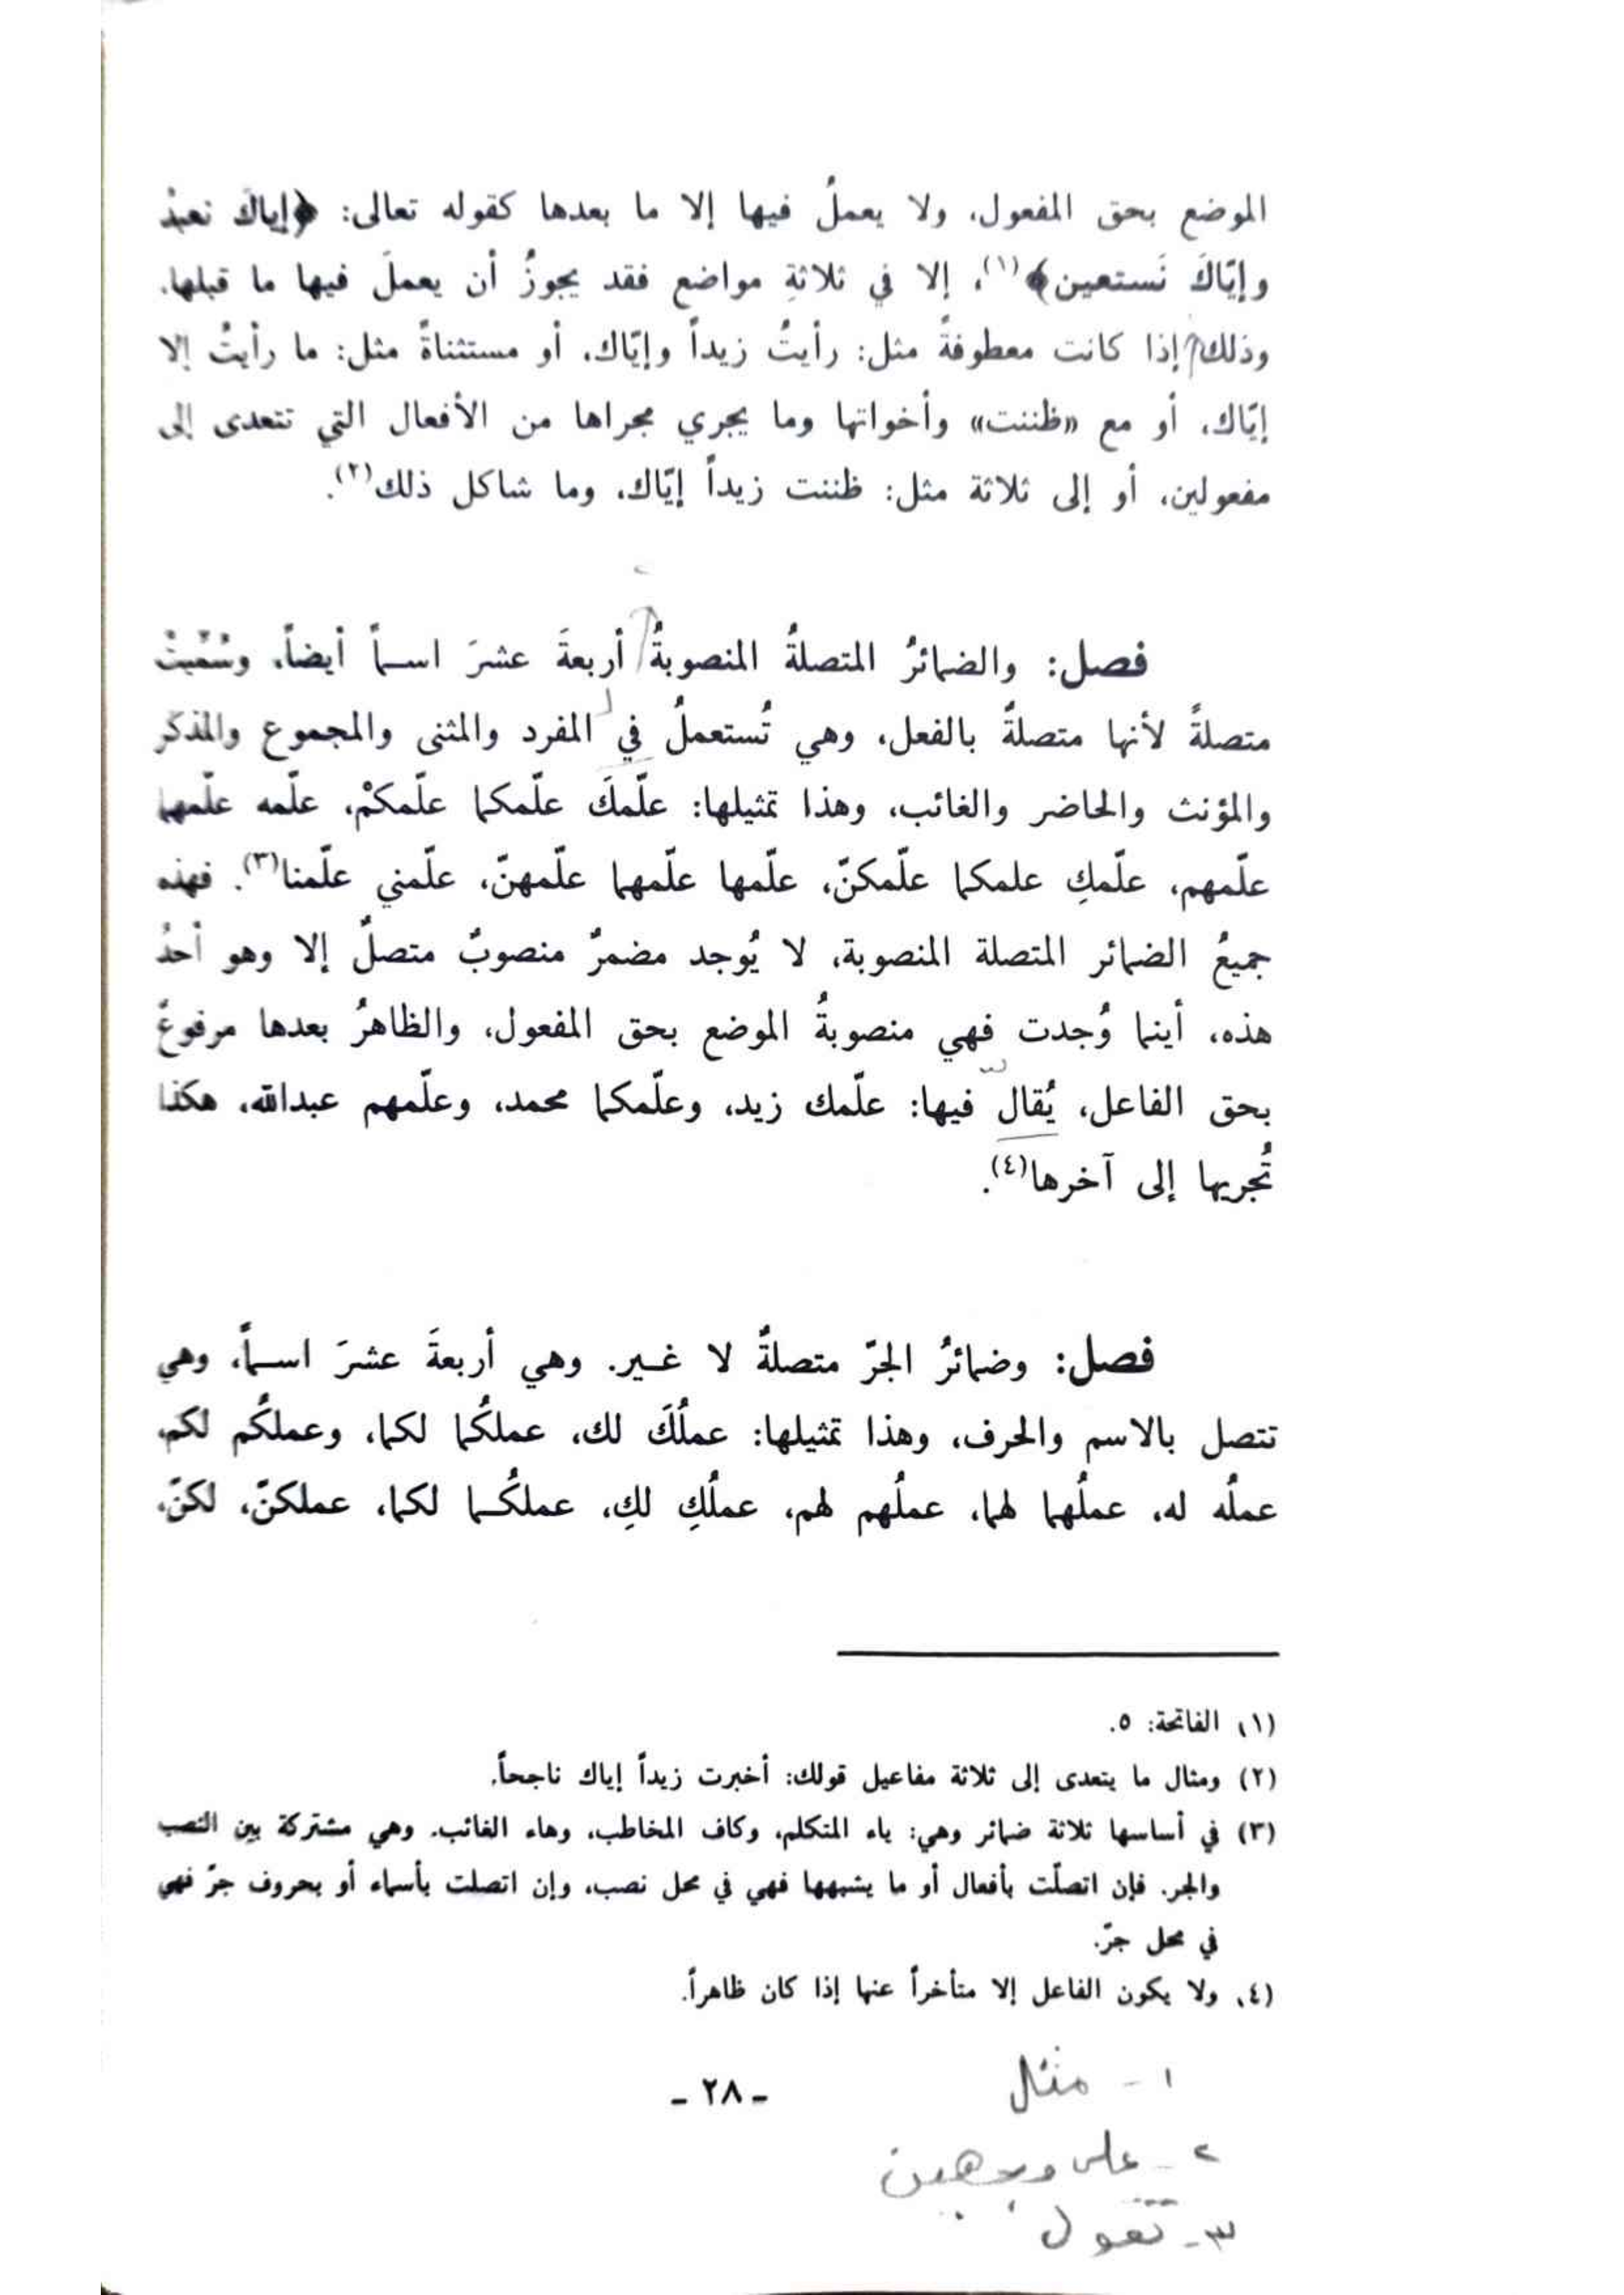 الموضع بحق المفعول، ولا يعملُ فيها إلا ما بعدها كقوله تعالى: ﴿إياكَ نعبدُ
وإيّاكَ نَستعين﴾(١)، إلا في ثلاثةِ مواضع فقد يجوزُ أن يعملَ فيها ما قبلها.
وذلك إذا كانت معطوفةً مثل: رأيتُ زيداً وإيّاك، أو مستثناةً مثل: ما رأيتُ إلا
إيّاك، أو مع «ظننت» وأخواتها وما يجري مجراها من الأفعال التي تتعدى إلى
مفعولين، أو إلى ثلاثة مثل: ظننت زيداً إيّاك، وما شاكل ذلك(٢).
فصل: والضمائرُ المتصلةُ المنصوبةُ أربعةَ عشرَ اسماً أيضاً، وسُمّيتْ
متصلةً لأنها متصلةٌ بالفعل، وهي تُستعملُ في المفرد والمثنى والمجموع والمذكّر
والمؤنث والحاضر والغائب، وهذا تمثيلها: علّمكَ علّمكما علّمكمْ، علّمه علّمهما
علّمهم، علّمكِ علمكما علّمكنّ، علّمها علّمهما علّمهنّ، علّمني علّمنا(٣). فهذه
جميعُ الضمائر المتصلة المنصوبة، لا يُوجد مضمرٌ منصوبٌ متصلٌ إلا وهو أحدُ
هذه، أينما وُجدت فهي منصوبةُ الموضع بحق المفعول، والظاهرُ بعدها مرفوعٌ
بحق الفاعل، يُقال فيها: علّمك زيد، وعلّمكما محمد، وعلّمهم عبدالله، هكذا
تُجريها إلى آخرها(٤).
فصل: وضمائرُ الجرّ متصلةٌ لا غير. وهي أربعةَ عشرَ اسماً، وهي
تتصل بالاسم والحرف، وهذا تمثيلها: عملُكَ لك، عملكُما لكما، وعملكُم لكم،
عملُه له، عملُهما لهما، عملُهم لهم، عملُكِ لكِ، عملكُما لكما، عملكنّ، لكنّ،
(١) الفاتحة: ٥.
(٢) ومثال ما يتعدى إلى ثلاثة مفاعيل قولك: أخبرت زيداً إياك ناجحاً.
(٣) في أساسها ثلاثة ضمائر وهي: ياء المتكلم، وكاف المخاطب، وهاء الغائب. وهي مشتركة بين النصب
والجر. فإن اتصلّت بأفعال أو ما يشبهها فهي في محل نصب، وإن اتصلت بأسماء أو بحروف جرّ فهي
في محل جرّ.
(٤) ولا يكون الفاعل إلا متأخراً عنها إذا كان ظاهراً.
١ - مثال
- ٢٨ -
٢ - على وجهين
٣ - تقول